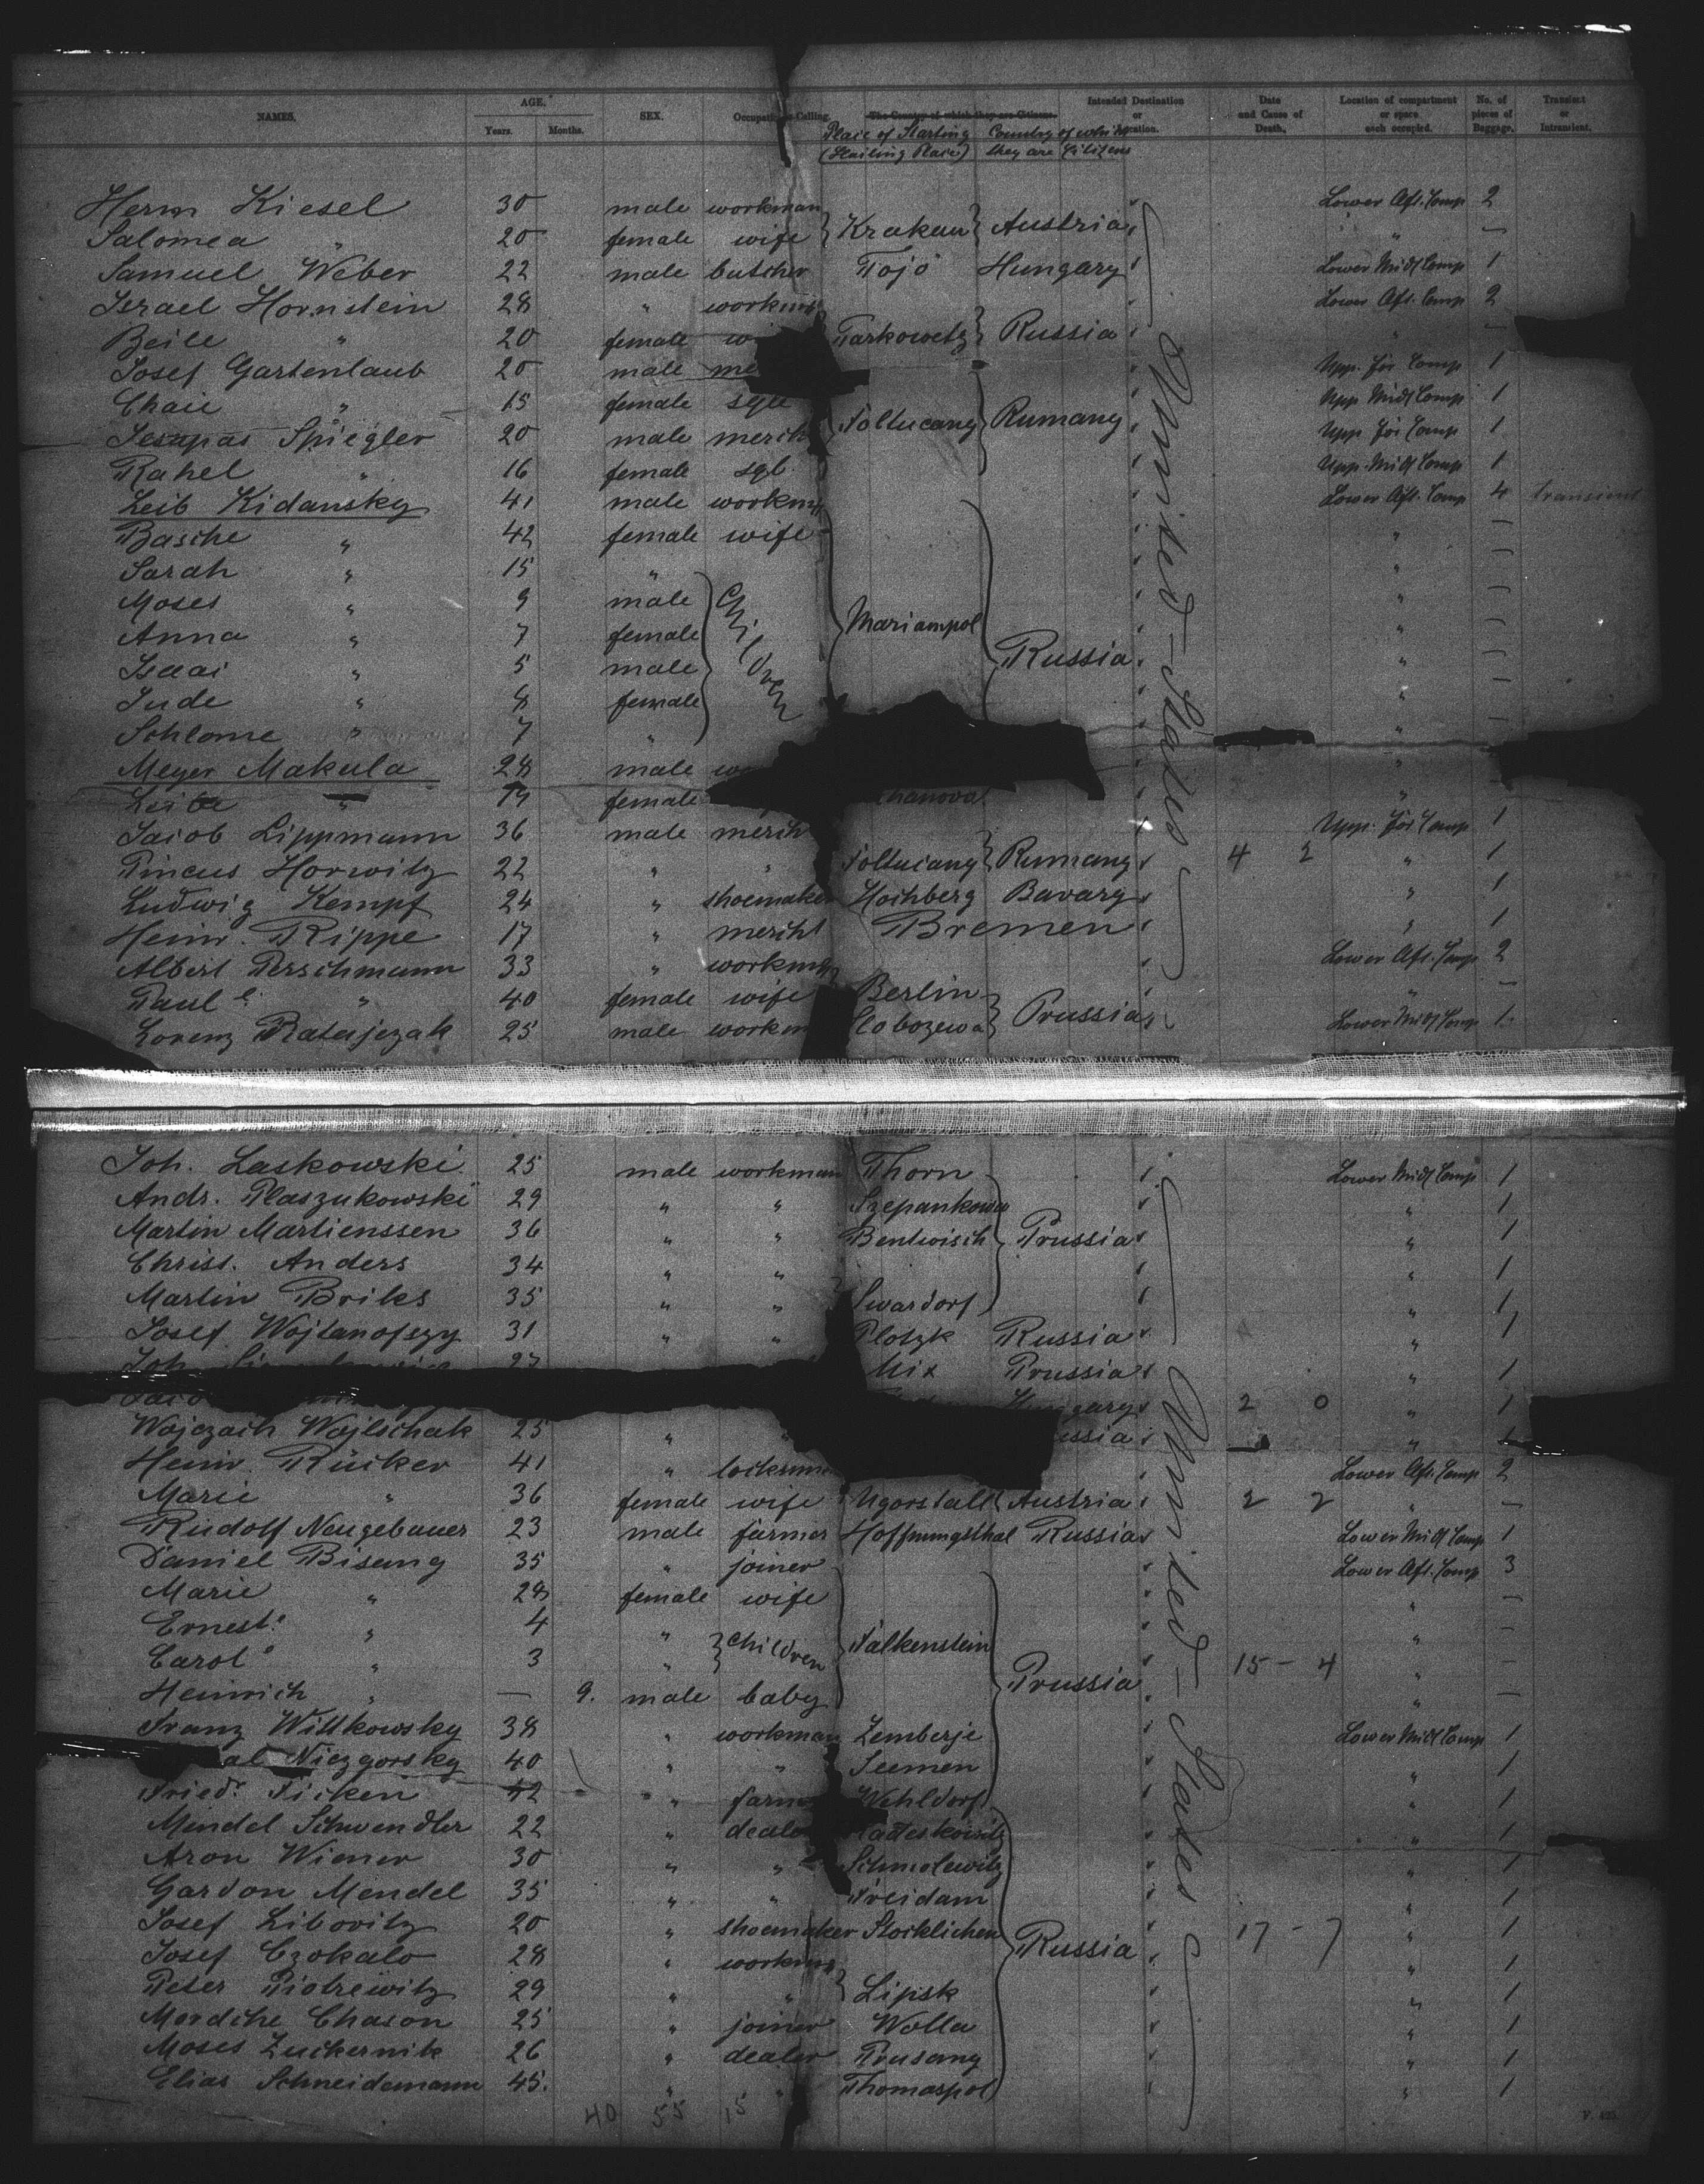 NAMES. AGE, Years. Months. SEX. Occupation Calling. The Country of which they are Citizens. Intended Destination or Location. Date and Cause of Death. Location of compartment or space each occupied. No. of pieces of Baggage. Transient or Intransient.
Place of Starting Country of which
(Starting Place) they are Citizens
Herm Kiesel 30 male workman Lower Aft. Comp 2
Salomea " 20 female wife Krakau Austria " —
Samuel Weber 22 male butcher Tojo Hungary Lower Midl Comp 1
Israel Hornstein 28 " workm Lower Aft. Comp 2
Beile " 20 female Tarkowetz Russia " —
Josef Gartenlaub 20 male Upp. For Comp 1
Chaie " 15 female sgle Upp Midl Comp 1
Spiegler 20 male merch Foltucany Rumany Upp For Comp 1
Rahel " 16 female sgl. Upp. Midl Comp 1
Leib Kidansky 41 male workm Lower Aft. Comp 4 transient
Basche " 42 female wife " —
Sarah " 15 " " —
Moses " 9 male Children " —
Anna " 7 female Mariampol " —
Isaai " 5 male Russia " —
Jude " 8 female " —
Schlome " 7 " " —
Meyer Makula 28 male "
Leibe " 19 female "
Jacob Lippmann 36 male merch Upp. For Comp 1
Pincus Horwitz 22 " " Foltucany Rumany 4 2 " 1
Ludwig Kempf 24 " shoemaker Hochberg Bavary " 1
Heinr. Rippe 17 " mercht Bremen " 1
Albert Perschmann 33 " workm Lower Aft. Comp 2
Paul e. " 40 female wife Berlin " —
Lorenz Ratajezak 25 male workm Slobozewa Prussia Lower Midl Comp 1
United-States
Joh. Laskowski 25 male workman Thorn Lower Midl Comp 1
Andr. Plaszukowski 29 " " Szepankowa " 1
Martin Martienssen 36 " " Bentwisch Prussia " 1
Christ. Anders 34 " " " 1
Martin Briks 35 " " Swardorf " 1
Josef Wojtanofszy 31 " " Plotzk Russia " 1
Joh. 27 Mix Prussia " 1
Hungary 2 0 " 1
Wojczach Wojlschak 25 " " 1
Heinr. Rücker 41 " locksm Lower Aft. Comp 2
Marie " 36 female wife Ugorstall Austria 2 2 " —
Rudolf Neugebauer 23 male farmer Hoffnungsthal Russia Lower Midl Comp 1
Daniel Bisang 35 " joiner Lower Aft. Comp 3
Marie " 28 female wife " —
Ernest. e " 4 " " —
Carol e " 3 " Children Falkenstein 15 – 4 " —
Heinrich " — 9. male baby Prussia " —
Franz Wittkowsky 38 " workman Zemberje Lower Midl Comp 1
al Niezgorsky 40 " " Seemen " 1
Friedr. Ficken 42 " farm Wehldorf " 1
Mendel Schwendler 22 " deale Radeskowitz " 1
Aron Wiener 30 " " Schmolewitz " 1
Gardon Mendel 35 " " Freidam " 1
Josef Libovitz 20 " shoemaker Stocklichen 17 – 7 " 1
Josef Czokalo 28 " workm Russia " 1
Peter Piotrewitz 29 " " Lipsk " 1
Mordche Chason 25 " joiner Wolla " 1
Moses Zuckernik 26 " dealer Prusany " 1
Elias Schneidemann 45. " " Thomaspol " 1
United-States
40 55 15